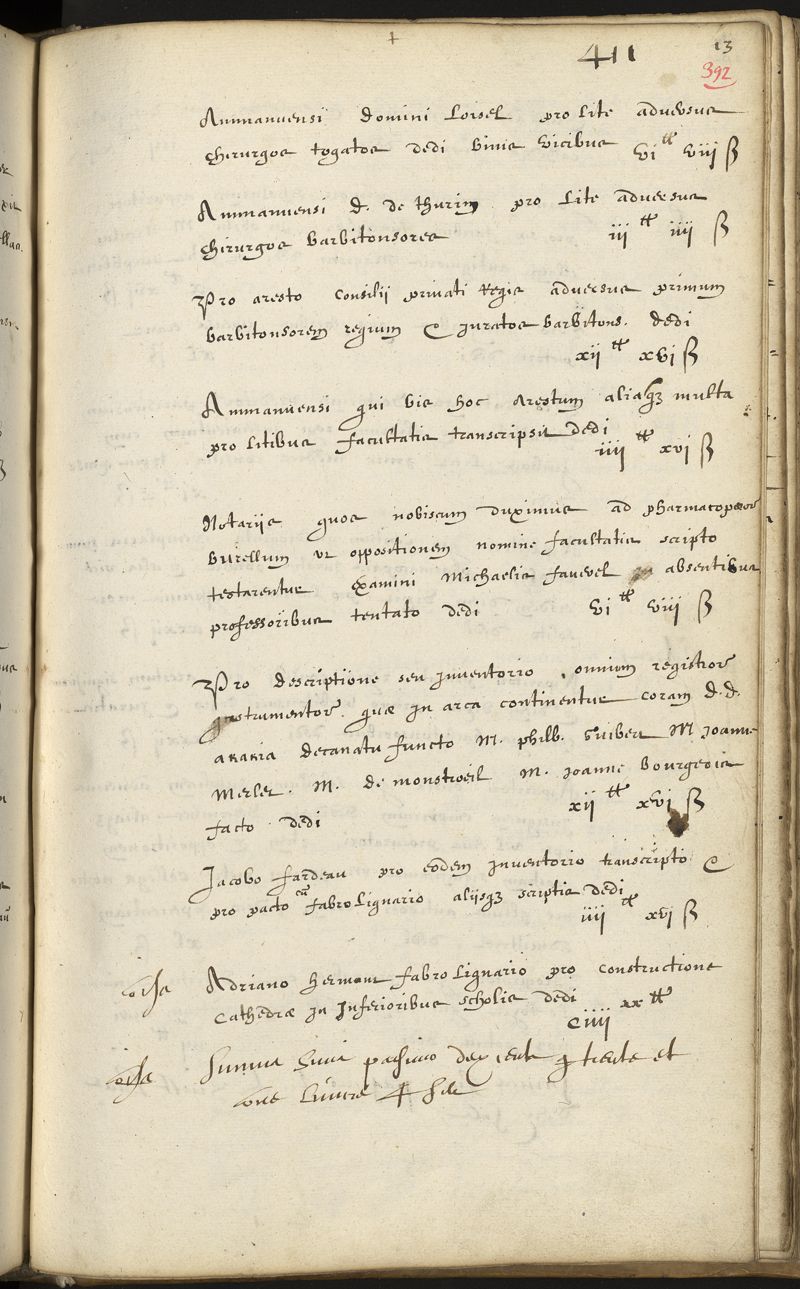 411
13
392
Ammanuensi domini Loisel pro lite adversus
chirurgos togatos dedi binis vicibus vi ₶ viij ß
Ammanuensi d. de thurin pro lite adversus
chirurgos barbitonsores iij ₶ iiij ß
Pro aresto consilij privati Regis adversus primum
barbitonsorem regium & juratos barbitons. dedi
xij ₶ xvj ß
Ammanuensi qui bis hoc arestum aliaqз multa
pro litibus facultatis transcripsit dedi
iiij ₶ xvj ß
Notarijs quos nobiscum duximus ad pharmacopœor
burellum ut oppositionem nomine facultatis scripto
testarentur examini Michaelis fauvel absentibus
professoribus tentato dedi vi ₶ viij ß
Pro descriptione seu inventorio omnium registror
instrumentor. quæ in arca continentur coram d.d.
akakia decanatu functo M. philb. Guibert M Joanne
Merlet. M. de monstroeil M. Joanne Bourgeois
facto dedi xij ₶ xvj ß
Jacobo fardeau pro eodem inventorio transcripto &
pro pacto cū fabro lignario alijsqз scriptis dedi
iiij ₶ xvj ß
Adriano hermant fabro lignario pro constructione
Cathedræ in Inferioribus scholis dedi
Ciiij xx ₶
Summa et